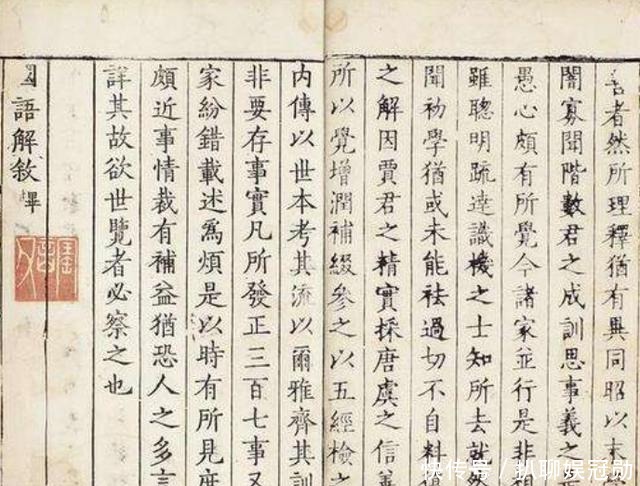 言者然所理釋猶有異同昭以末
闇寡聞階數君之成訓思事義之
愚心頗有所覺今諸家並行是非
雖聰明疏達識機之士知所去就然
聞初學猶或未能祛過切不自料
之解因賈君之精實採唐虞之信善
所以覺增潤補綴參之以五經檢之
内傳以世本考其流以爾雅齊其訓
非要存事實凡所發正三百七事又
家紛錯載述爲煩是以時有所見庶
頗近事情裁有補益猶恐人之多言
詳其故欲世覽者必察之也
國語解敘畢
快传号 / 扒聊娱冠勋